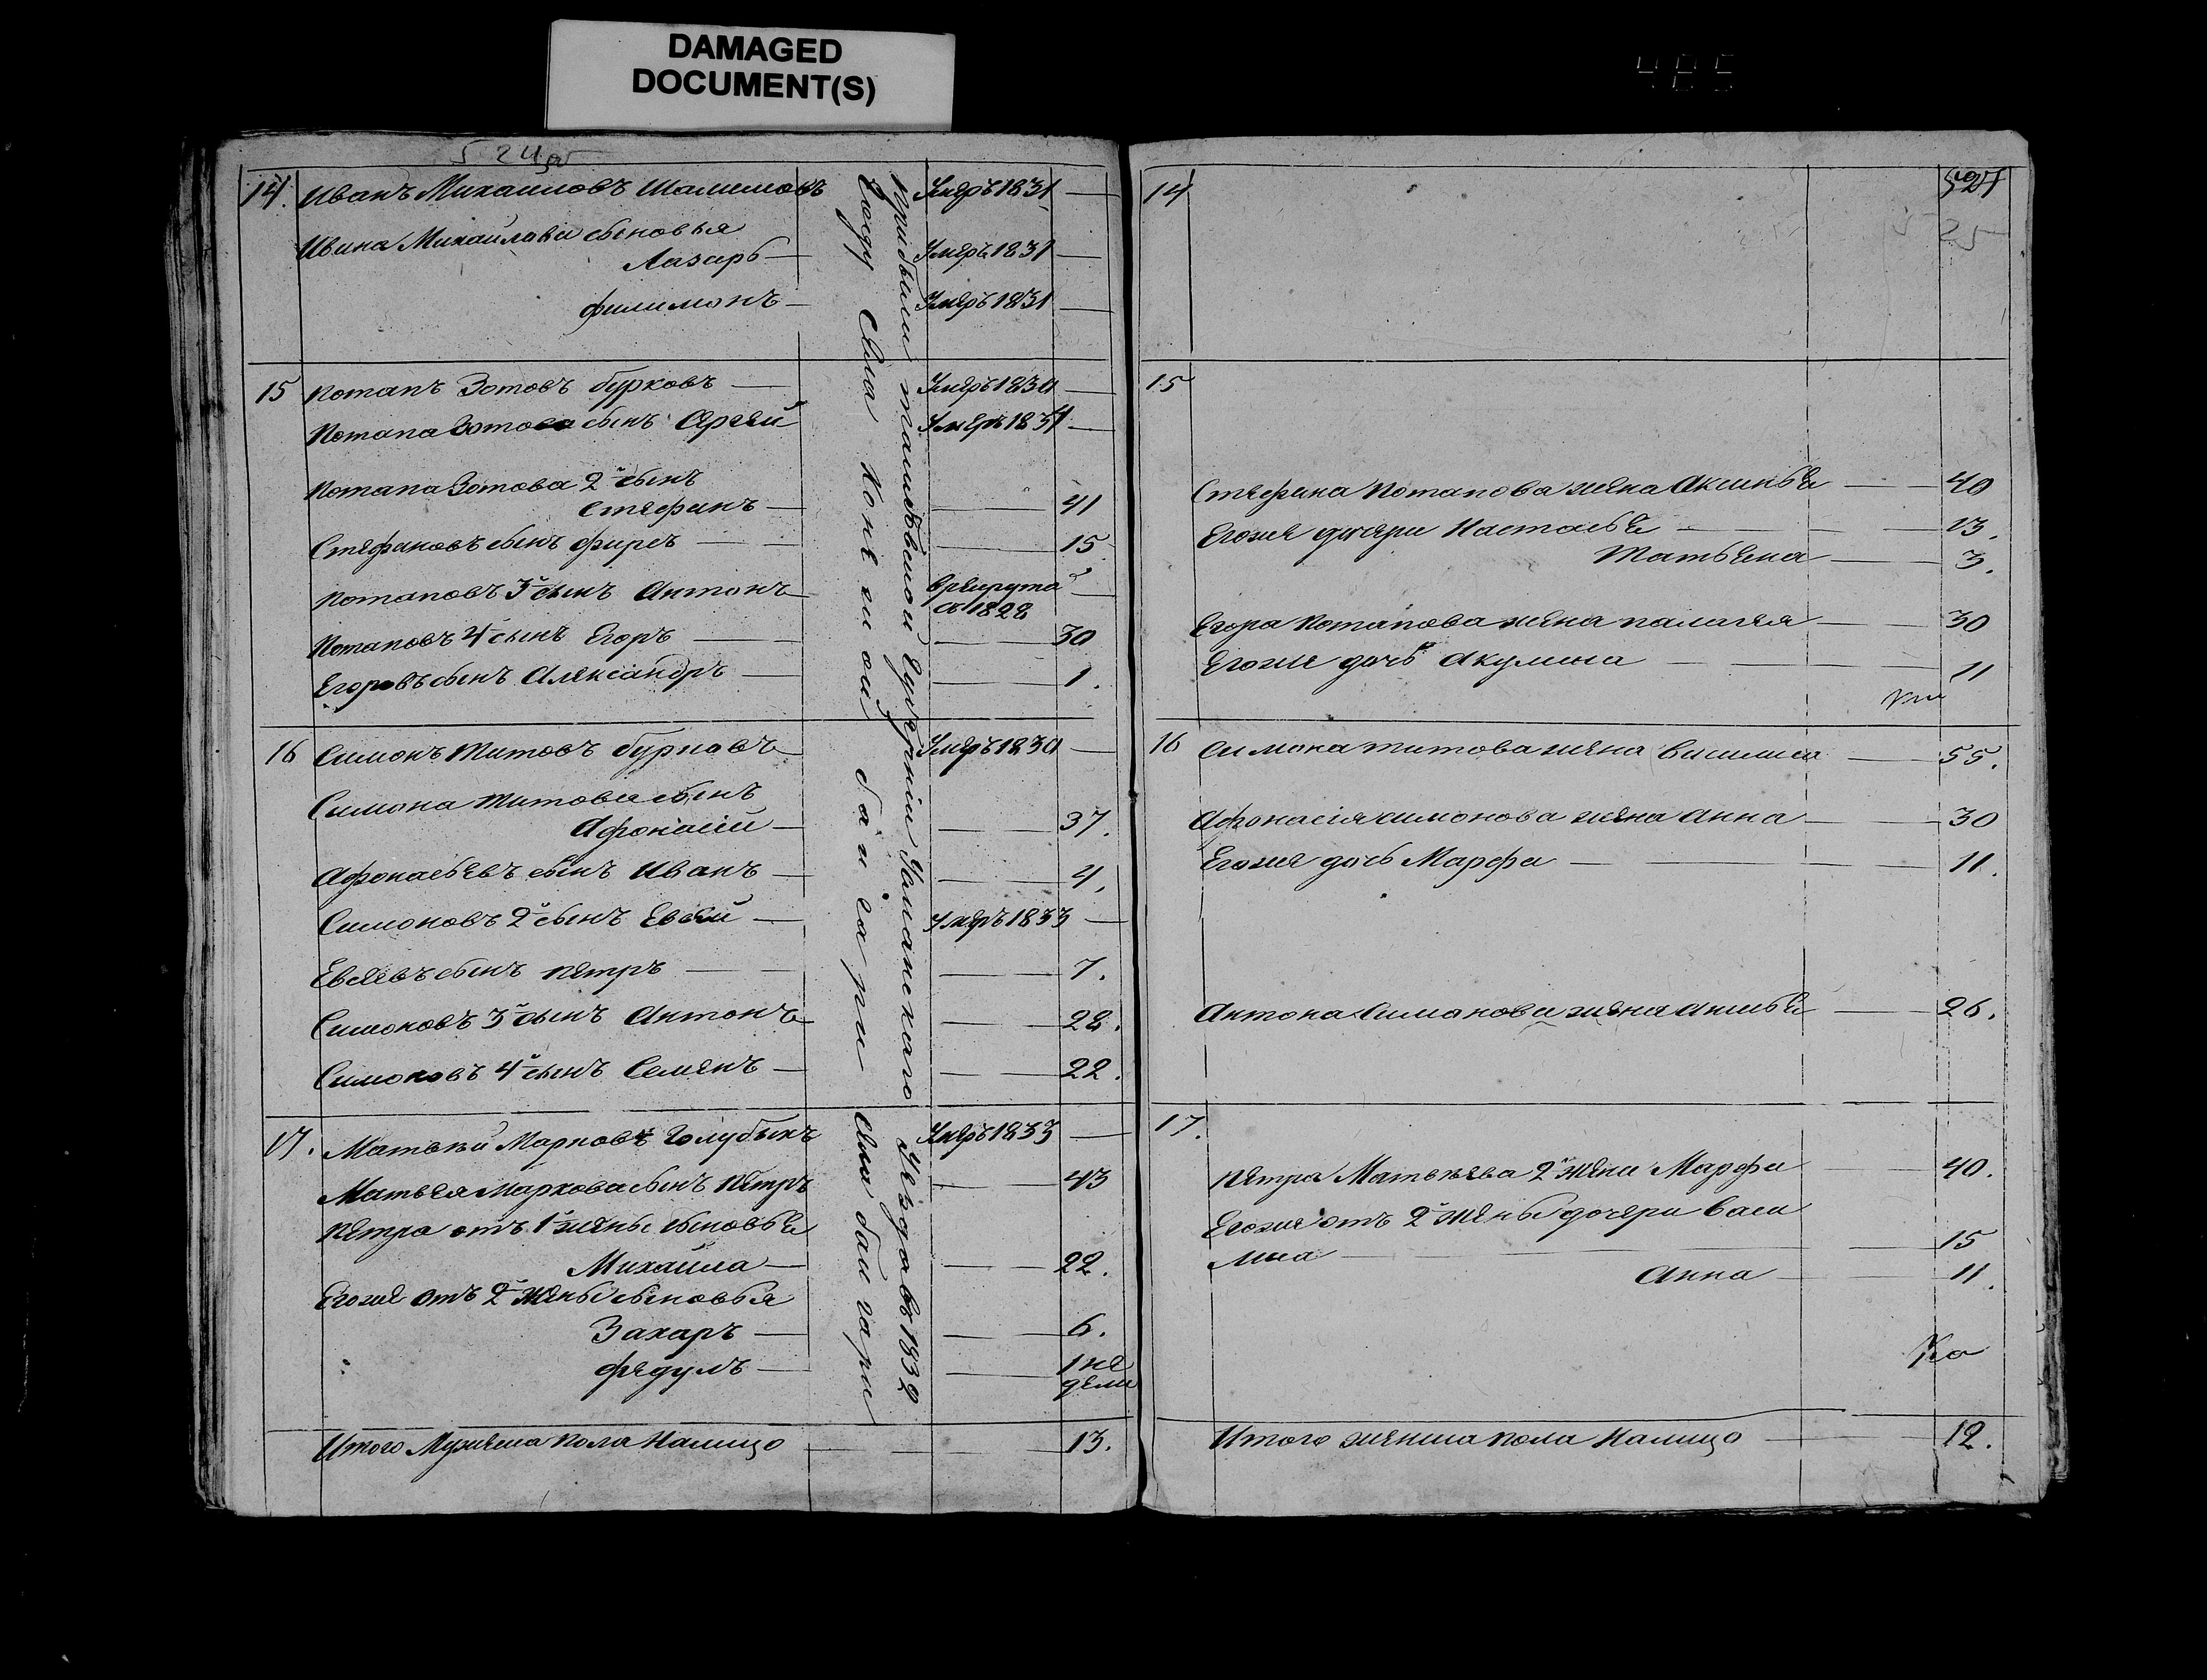 DAMAGED
DOCUMENT(S)
485
524
14. Иванъ Михаиловъ Шалимовъ Умеръ 1831
Ивана Михайлова сыновья
Лазарь Умеръ 1831
Филимонъ Умеръ 1831
15 Потапъ Зотовъ бурковъ Умеръ 1830
Потапа Зотова сынъ Сергей Умеръ 1831
Потапа Зотова 2й сынъ
Стефанъ 41
Стефановъ сынъ Фирсъ 15
Потаповъ 3й сынъ Антонъ в рекрутахъ
съ 1828
Потаповъ 4й сынъ Егоръ 30
Егоровъ сынъ Александръ 1.
16 Симонъ Титовъ бурковъ Умеръ 1830
Симона Титова сынъ
Афонасий 37.
Афонасьевъ сынъ Иванъ 4.
Симоновъ 2й сынъ Евсей Умеръ 1833
Евсеевъ сынъ Петръ 7.
Симоновъ 3й сынъ Антонъ 28.
Симоновъ 4й сынъ Семенъ 22.
17. Матвей Марковъ Голубынъ Умеръ 1833
Матвея Маркова сынъ Петръ 43
Петра отъ 1й жены сыновья
Михайла 22.
Егоже отъ 2й жены сыновья
Захаръ 6.
Федулъ 1 не
дели
Итого Мужеска пола налицо 13.
Прибыли тамбовской Губерніи Усманскаго Уезда въ 1832
Году Села Бойгари
14
25
15
Стефана Потапова жена Аксинья 40
Егоже дочери Настасья 13.
Татьяна 3.
Егора Потапова жена палагея 30
Егоже дочь Акулина 11
16 Симона титова жена Василиса 55.
Афонасія симонова жена Анна 30
Егоже дочь Марфа 11.
Антона Симонова жена Анисья 26.
17.
Петра Матвеева 2я жена Марфа 40.
Егоже отъ 2й жены дочери Васи
лиса 15
Анна 11.
Итого женска пола налицо 12.